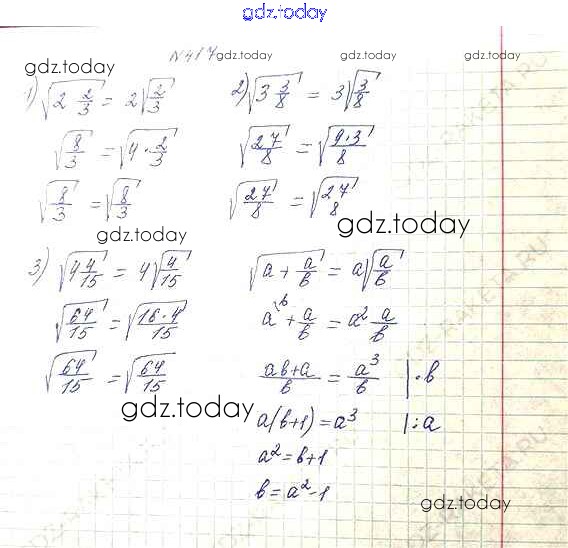 gdz.today
№417 gdz.today gdz.today gdz.today
gdz.today
1) √(2 2/3) = 2√(2/3)
√(8/3) = √(4·2/3)
√(8/3) = √(8/3)
2) √(3 3/8) = 3√(3/8)
√(27/8) = √(9·3/8)
√(27/8) = √(27/8)
gdz.today
gdz.today
3) √(4 4/15) = 4√(4/15)
√(64/15) = √(16·4/15)
√(64/15) = √(64/15)
gdz.today
√(a + a/b) = a√(a/b)
a^(b + a/b = a² a/b
(ab+a)/b = a³/b |·b
a(b+1) = a³ |:a
a² = b+1
b = a²-1
gdz.today